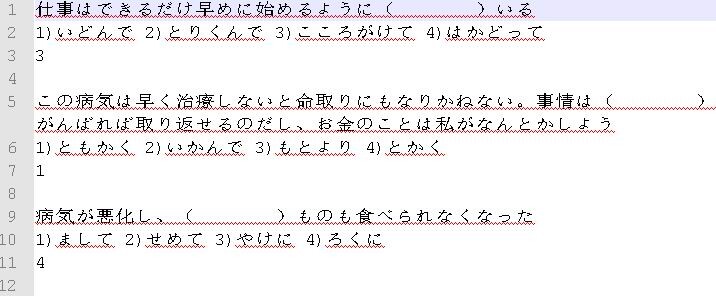 1 仕事はできるだけ早めに始めるように（　　　　）いる
2 1)いどんで 2)とりくんで 3)こころがけて 4)はかどって
3 3
4
5 この病気は早く治療しないと命取りにもなりかねない。事情は（　　　　）
がんばれば取り返せるのだし、お金のことは私がなんとかしよう
6 1)ともかく 2)いかんで 3)もとより 4)とかく
7 1
8
9 病気が悪化し、（　　　　）ものも食べられなくなった
10 1)まして 2)せめて 3)やけに 4)ろくに
11 4
12